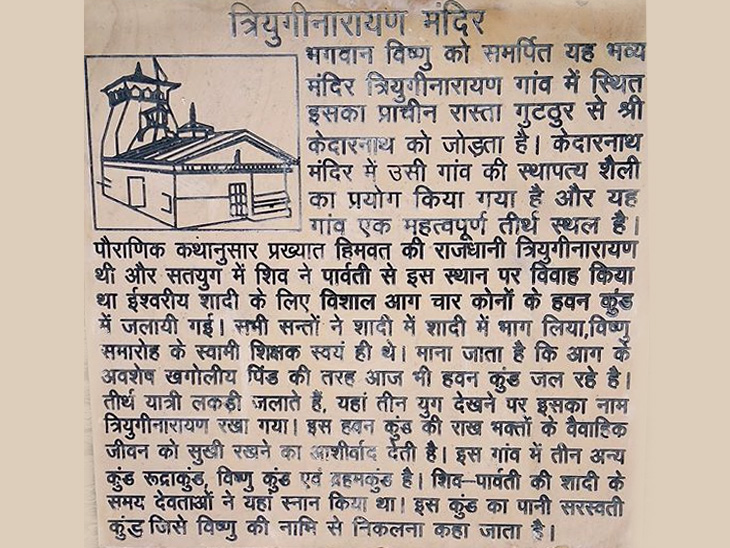 त्रियुगीनारायण मंदिर
भगवान विष्णु को समर्पित यह भव्य
मंदिर त्रियुगीनारायण गांव में स्थित
इसका प्राचीन रास्ता गुटठुर से श्री
केदारनाथ को जोड़ता है। केदारनाथ
मंदिर में उसी गांव की स्थापत्य शैली
का प्रयोग किया गया है और यह
गांव एक महत्वपूर्ण तीर्थ स्थल है।
पौराणिक कथांनुसार प्रख्यात हिमवत की राजधानी त्रियुगीनारायण
थी और सतयुग में शिव ने पार्वती से इस स्थान पर विवाह किया
था ईश्वरीय शादी के लिए विशाल आग चार कोनों के हवन कुंड
में जलायी गई। सभी सन्तों ने शादी में शादी में भाग लिया,विष्णु
समारोह के स्वामी शिक्षक स्वयं ही थे। माना जाता है कि आग के
अवशेष खगोलीय पिंड की तरह आज भी हवन कुंड जल रहे है।
तीर्थ यात्री लकड़ी जलाते हैं, यहां तीन युग देखने पर इसका नाम
त्रियुगीनारायण रखा गया। इस हवन कुंड की राख भक्तों के वैवाहिक
जीवन को सुखी रखने का आशीर्वाद देती है। इस गांव में तीन अन्य
कुंड रूद्राकुंड, विष्णु कुंड एवं ब्रहमकुंड है। शिव–पार्वती की शादी के
समय देवताओं ने यहां स्नान किया था। इस कुंड का पानी सरस्वती
कुंड जिसे विष्णु की नाभि से निकलना कहा जाता है।